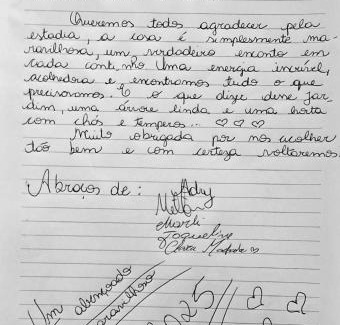 Queremos todos agradecer pela
estadia, a casa é simplesmente ma-
ravilhosa, um verdadeiro encanto em
cada cantinho. Uma energia incrível,
acolhedora e encontramos tudo o que
precisavamos. E o que dizer desse jar-
dim, uma árvore linda e uma horta
com chás e temperos... ♡♡♡
Muito obrigada por nos acolher
tão bem e com certeza voltaremos.
Abraços de: Adry
Marli
Joqueline
Clara
Um abençoado
maravilhoso
2025//